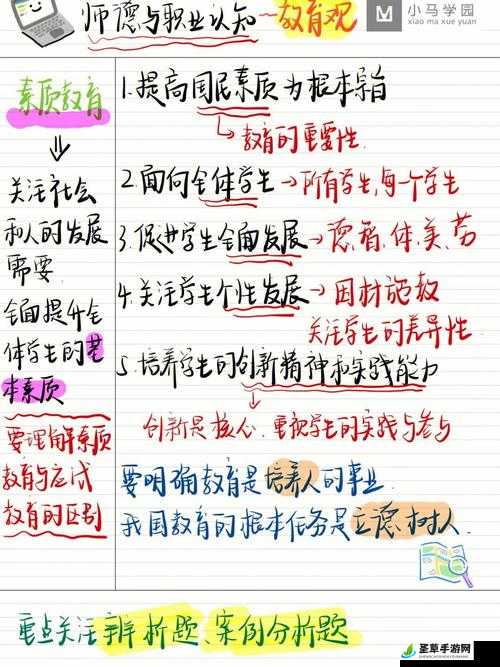 师德与职业认知—教育观
小马学园
xiao ma xue yuan
素质教育
关注社会
和人的发展
需要
全面提升全
体学生的基
本素质
要理解素质
教育与应试
教育的区别
1.提高国民素质为根本宗旨
教育的重要性
2.面向全体学生→所有学生,每一个学生
3.促进学生全面发展→德、智、体、美、劳
4.关注学生个性发展→因材施教
关注学生的差异性
5.培养学生的创新精神和实践能力
创新是核心、重视学生的实践与参与
要明确教育是培养人的事业
我国教育的根本任务是立德树人
重点关注辨析题、案例分析题
圣草手游网